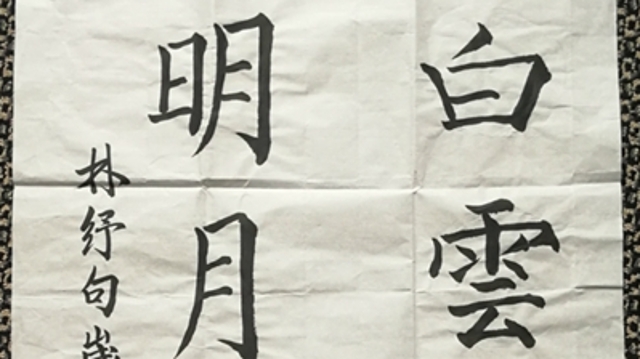 白雲
明月
林纾句